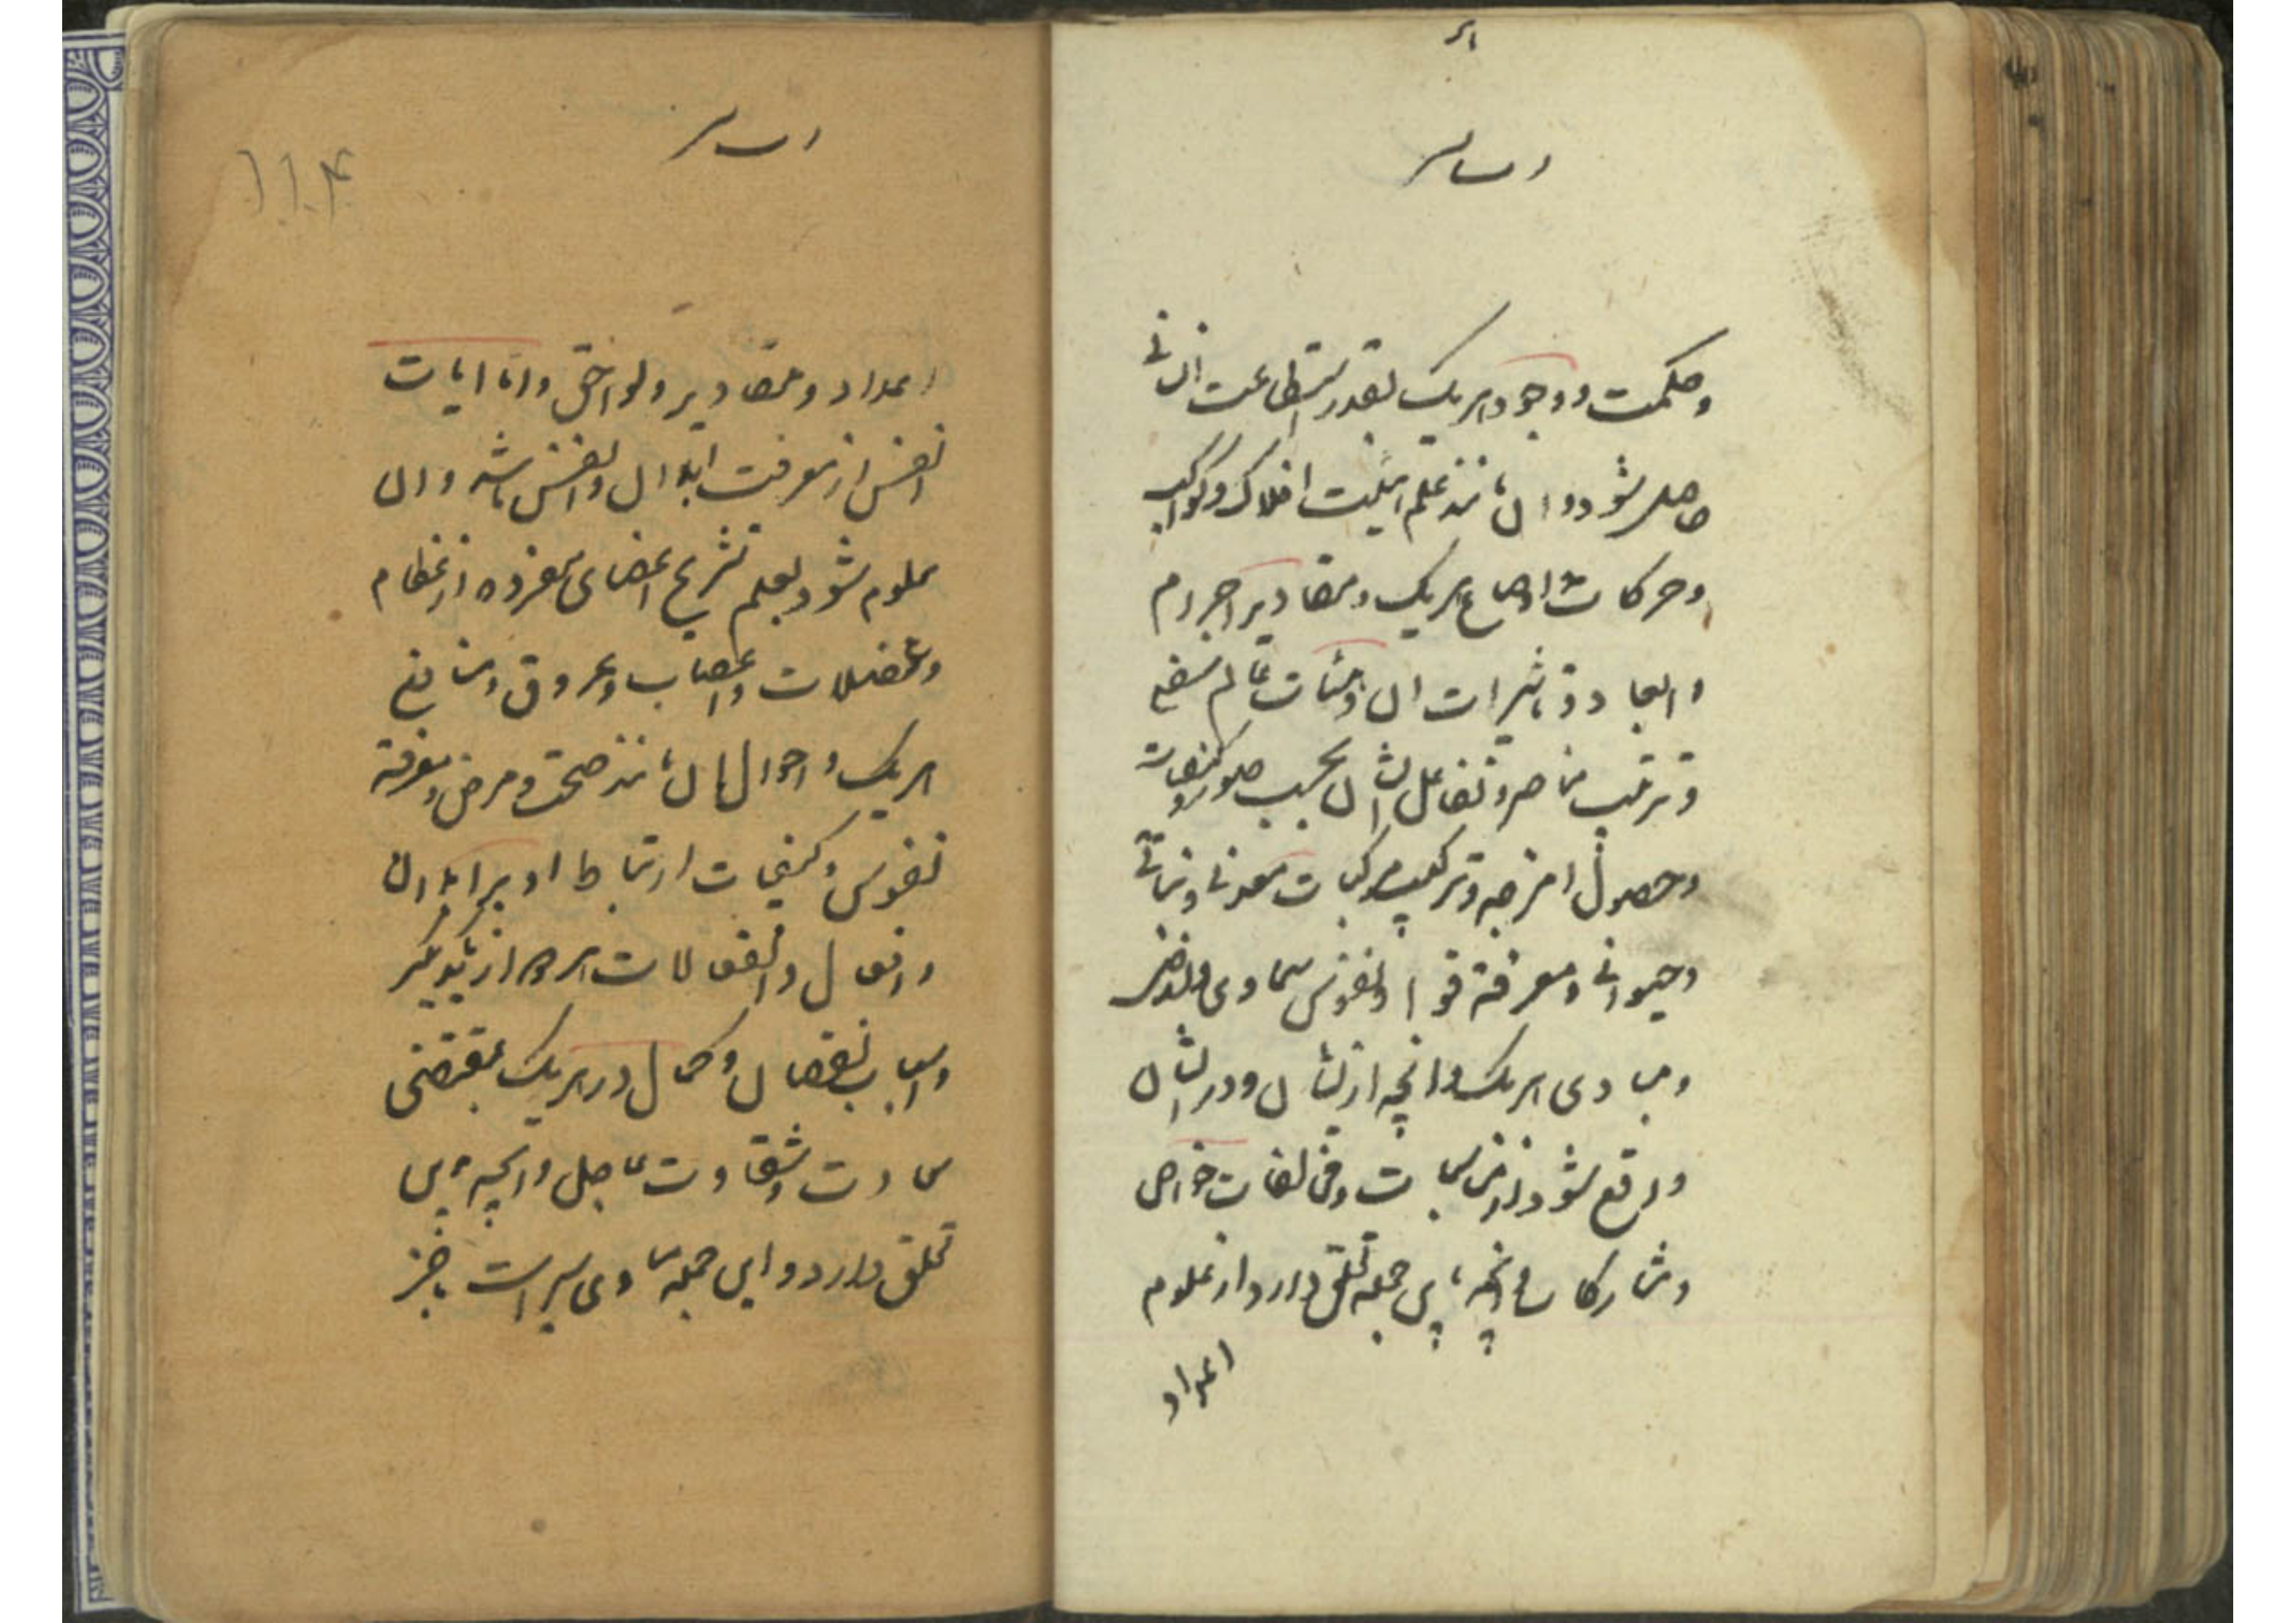 وحکمت و وجود هریک بقدر استطاعت انسانی
حاصل شود و ان مانند علم هیئت افلاک و کواکب
وحرکات و اوضاع هریک و مقادیر اجرام
و ابعاد و تاثیرات ان و هیئات عالم سفلی
و ترتیب عناصر و تفاعل ایشان بحسب صور و کیفیات
وحصول امزجه و ترکیب مرکبات معدنی و نباتی
وحیوانی و معرفة قوا و نفوس سماوی و ارضی
و مبادی هریک و انچه از ایشان و در ایشان
واقع شود از مناسبات و مخالفات خواص
و مشارکات و انچه باین جمله تعلق دارد از علوم
اعداد
اعداد و مقادیر و لواحق و اما ایات
انفس از معرفت ابدان و انفس باشد و ان
معلوم شود بعلم تشریح اعضای مفرده از عظام
وعضلات و اعصاب و عروق و منافع
هریک و احوال ان مانند صحت و مرض و معرفة
نفوس و کیفیات ارتباط او بر ابدان
و افعال و انفعالات هردو از یکدیگر
و اسباب نقصان و کمال در هریک مقتضی
سعادت و شقاوت عاجل و انچه باین
تعلق دارد و این جمله مبادی سیر است